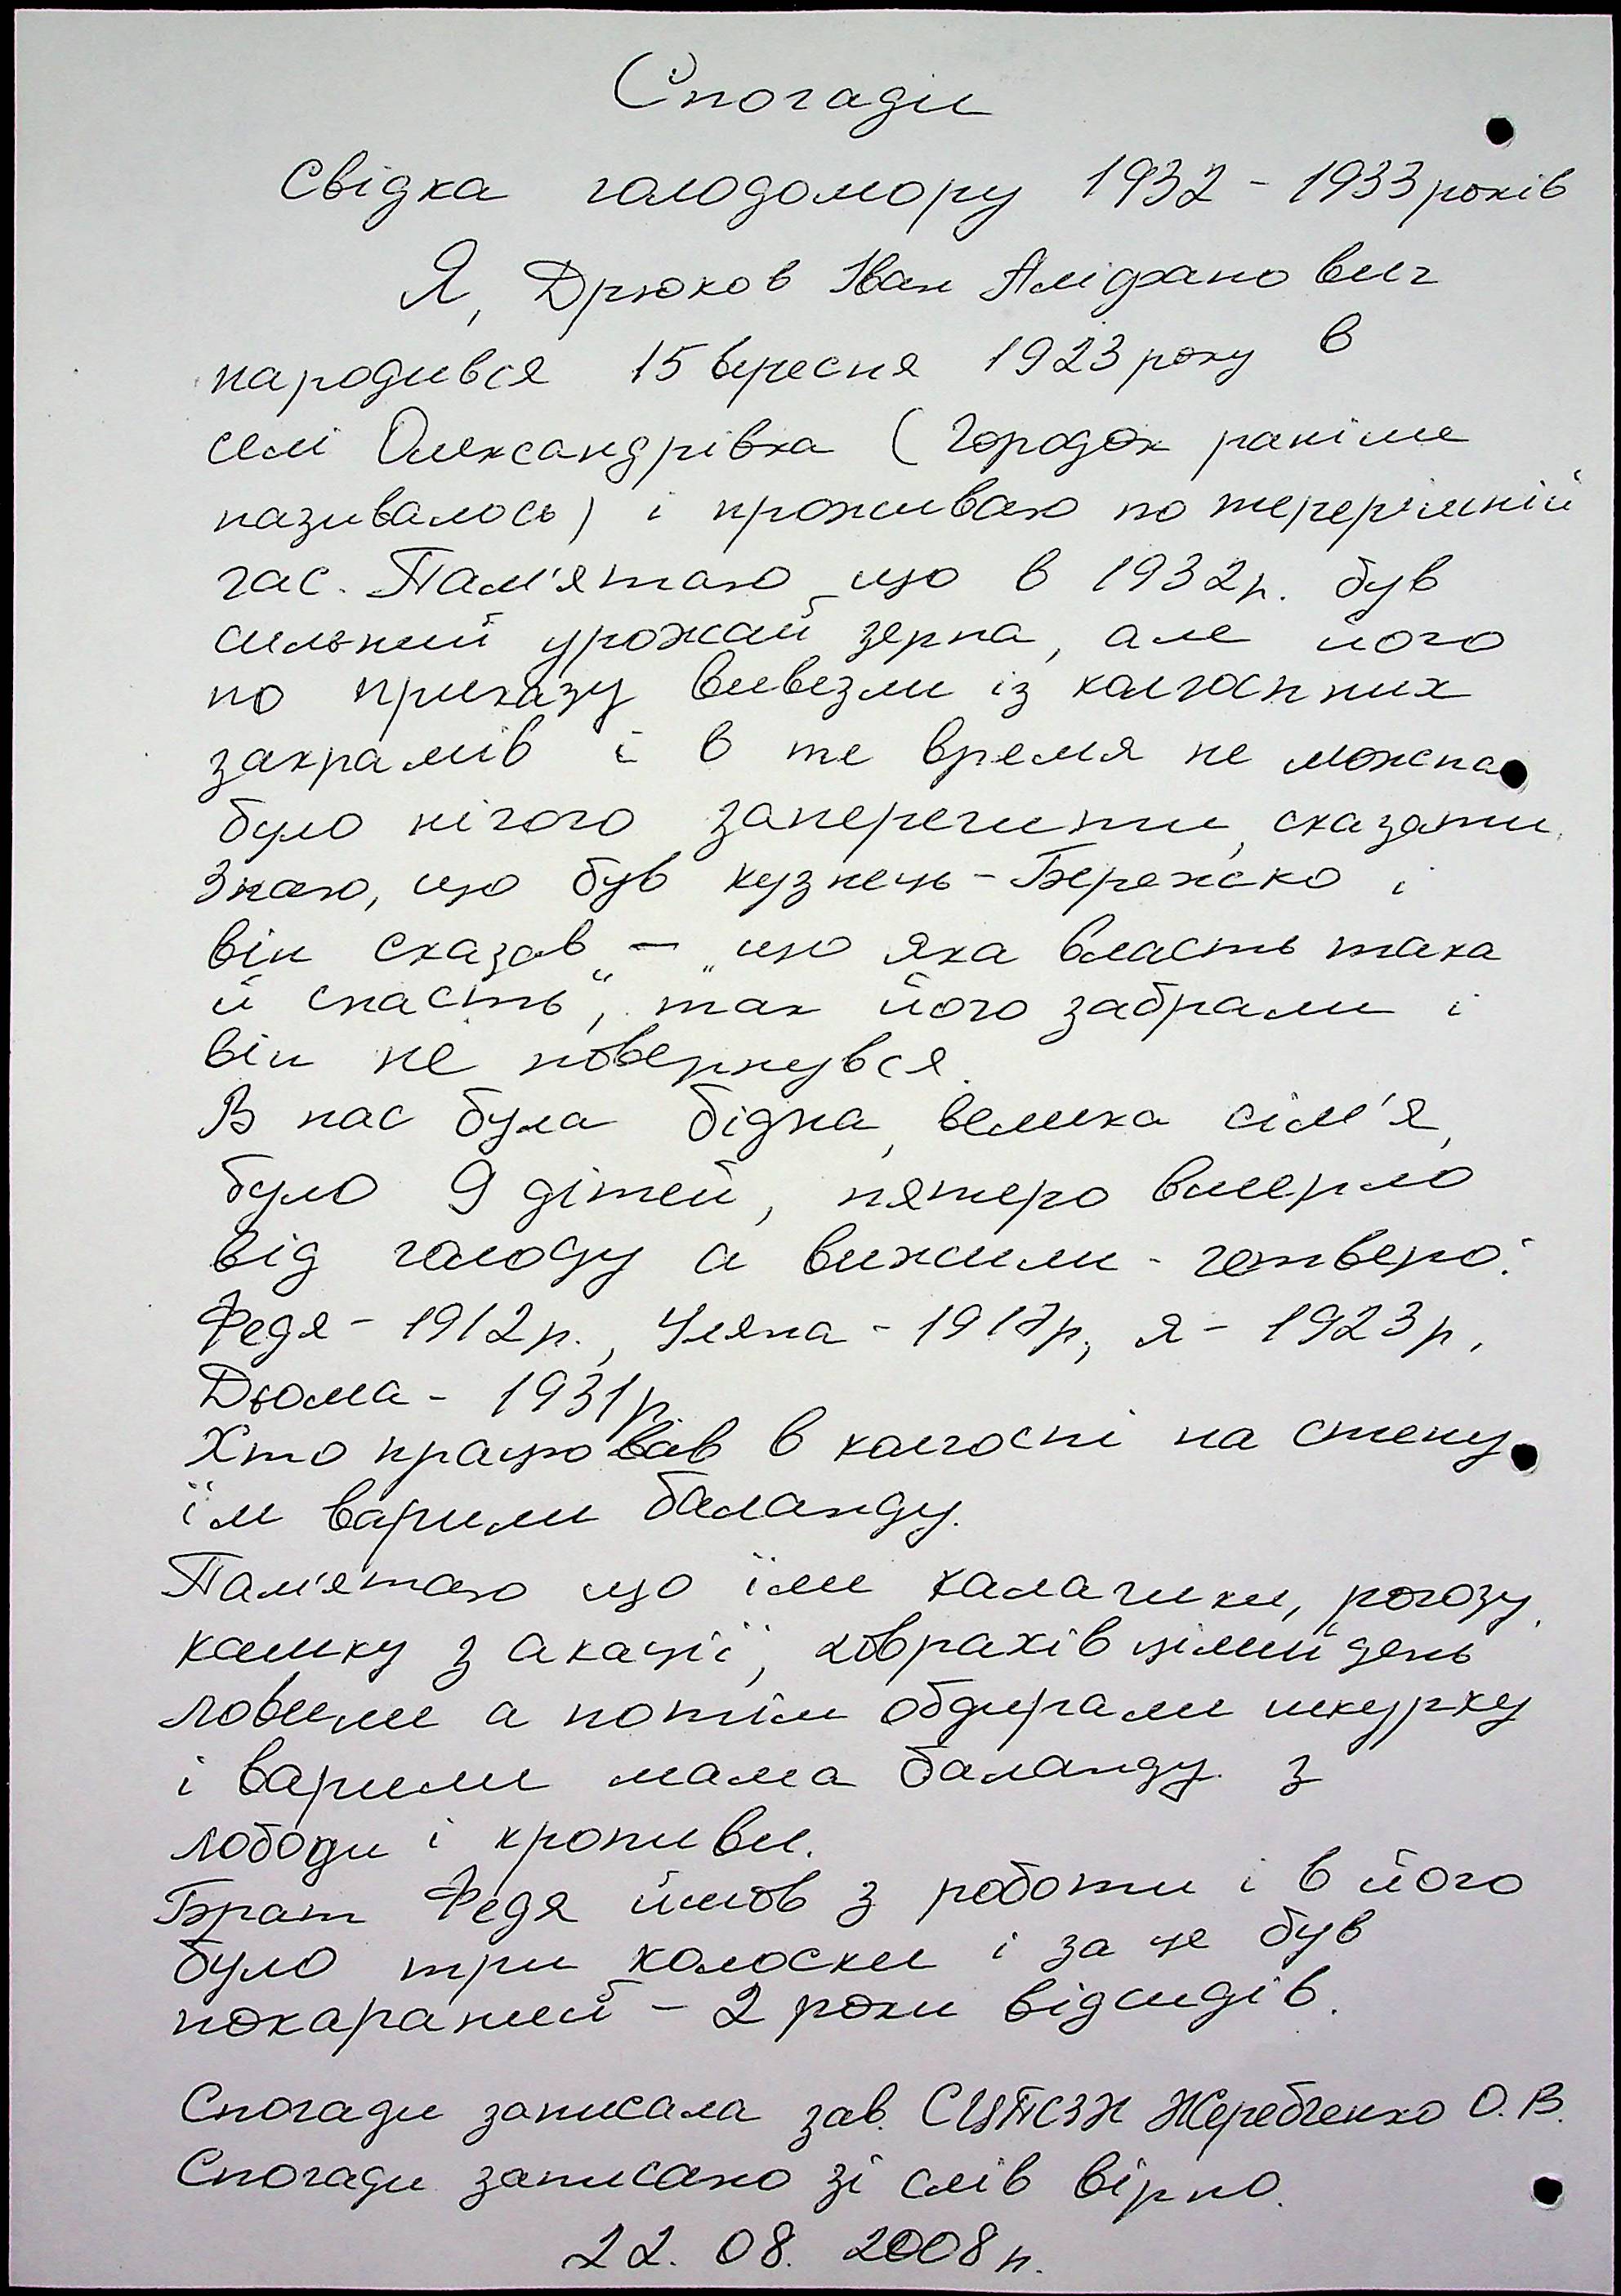 Спогади
свідка голодомору 1932 - 1933 років
Я, Дрюков Іван Аліфанович
народився 15 вересня 1923 року в
селі Олександрівка (Городок раніше
називалось) і проживаю по
час. Пам'ятаю що в 1932р. був
сильний урожай зерна, але його
по приказу вивезли із колгоспних
закрамів і в те время не можна
було нічого заперечити, сказати.
Знаю, що був кузнець - Бережко і
він сказав - „що яка власть така
й снасть“, так його забрали і
він не повернувся.
В нас була бідна, велика сім'я,
було 9 дітей, пятеро вмерло
від голоду а вижили - четверо:
Федя - 1912р., Уляна - 1917р, я - 1923р,
Дьома - 1931р.
Хто працював в колгоспі на степу
їм варили баланду.
Пам'ятаю що їли калачики, рогозу,
кашку з акації, ховрахів цілий день
ловили а потім обдирали шкурку
і варили мама баланду з
лободи і кропиви.
Брат Федя йшов з роботи і в його
було три колоски і за це був
покараний - 2 роки відсидів.
Спогади записала зав. Жеребченко О.В.
Спогади записано зі слів вірно.
22. 08. 2008р.